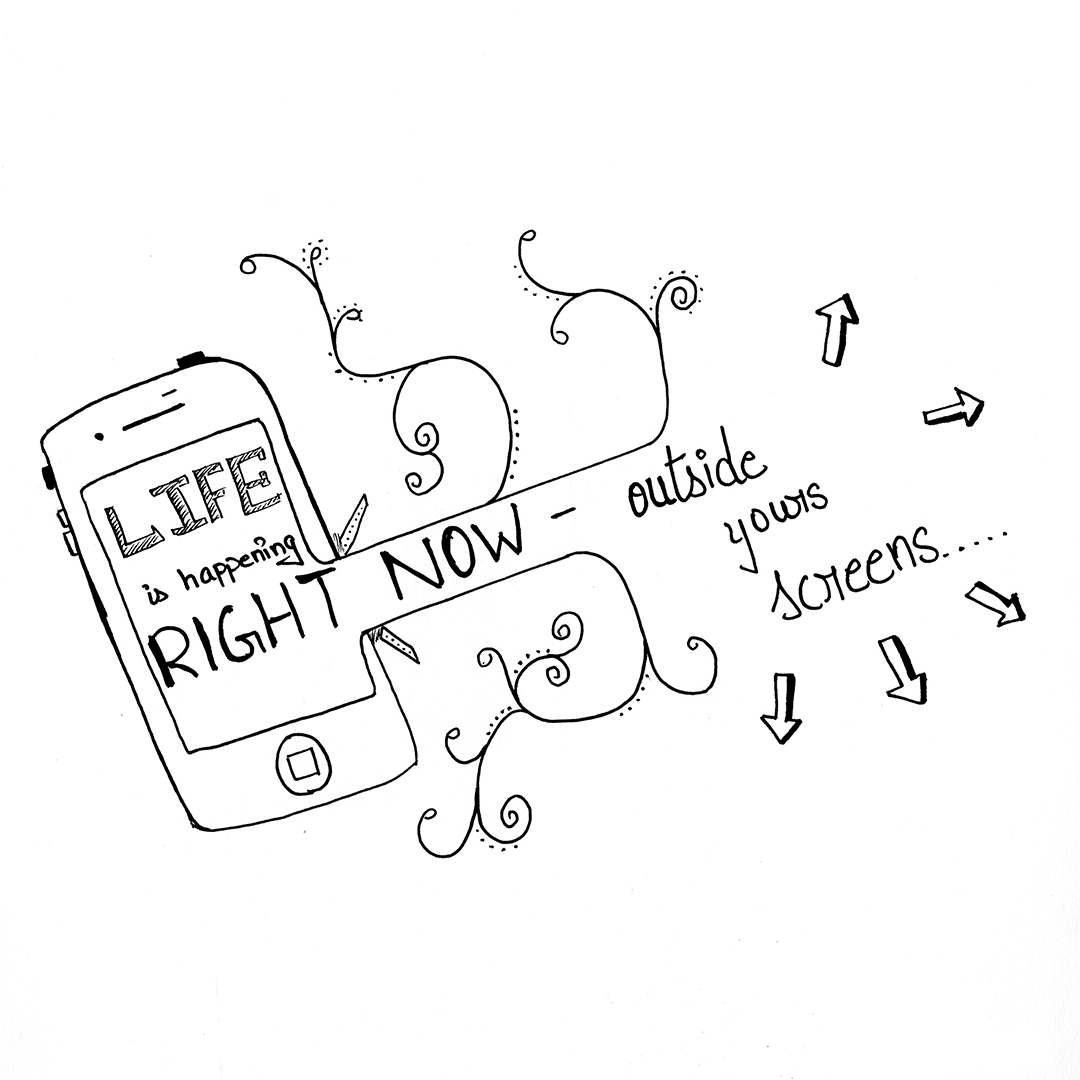 LIFE
is happening
RIGHT NOW - outside
yours
screens......